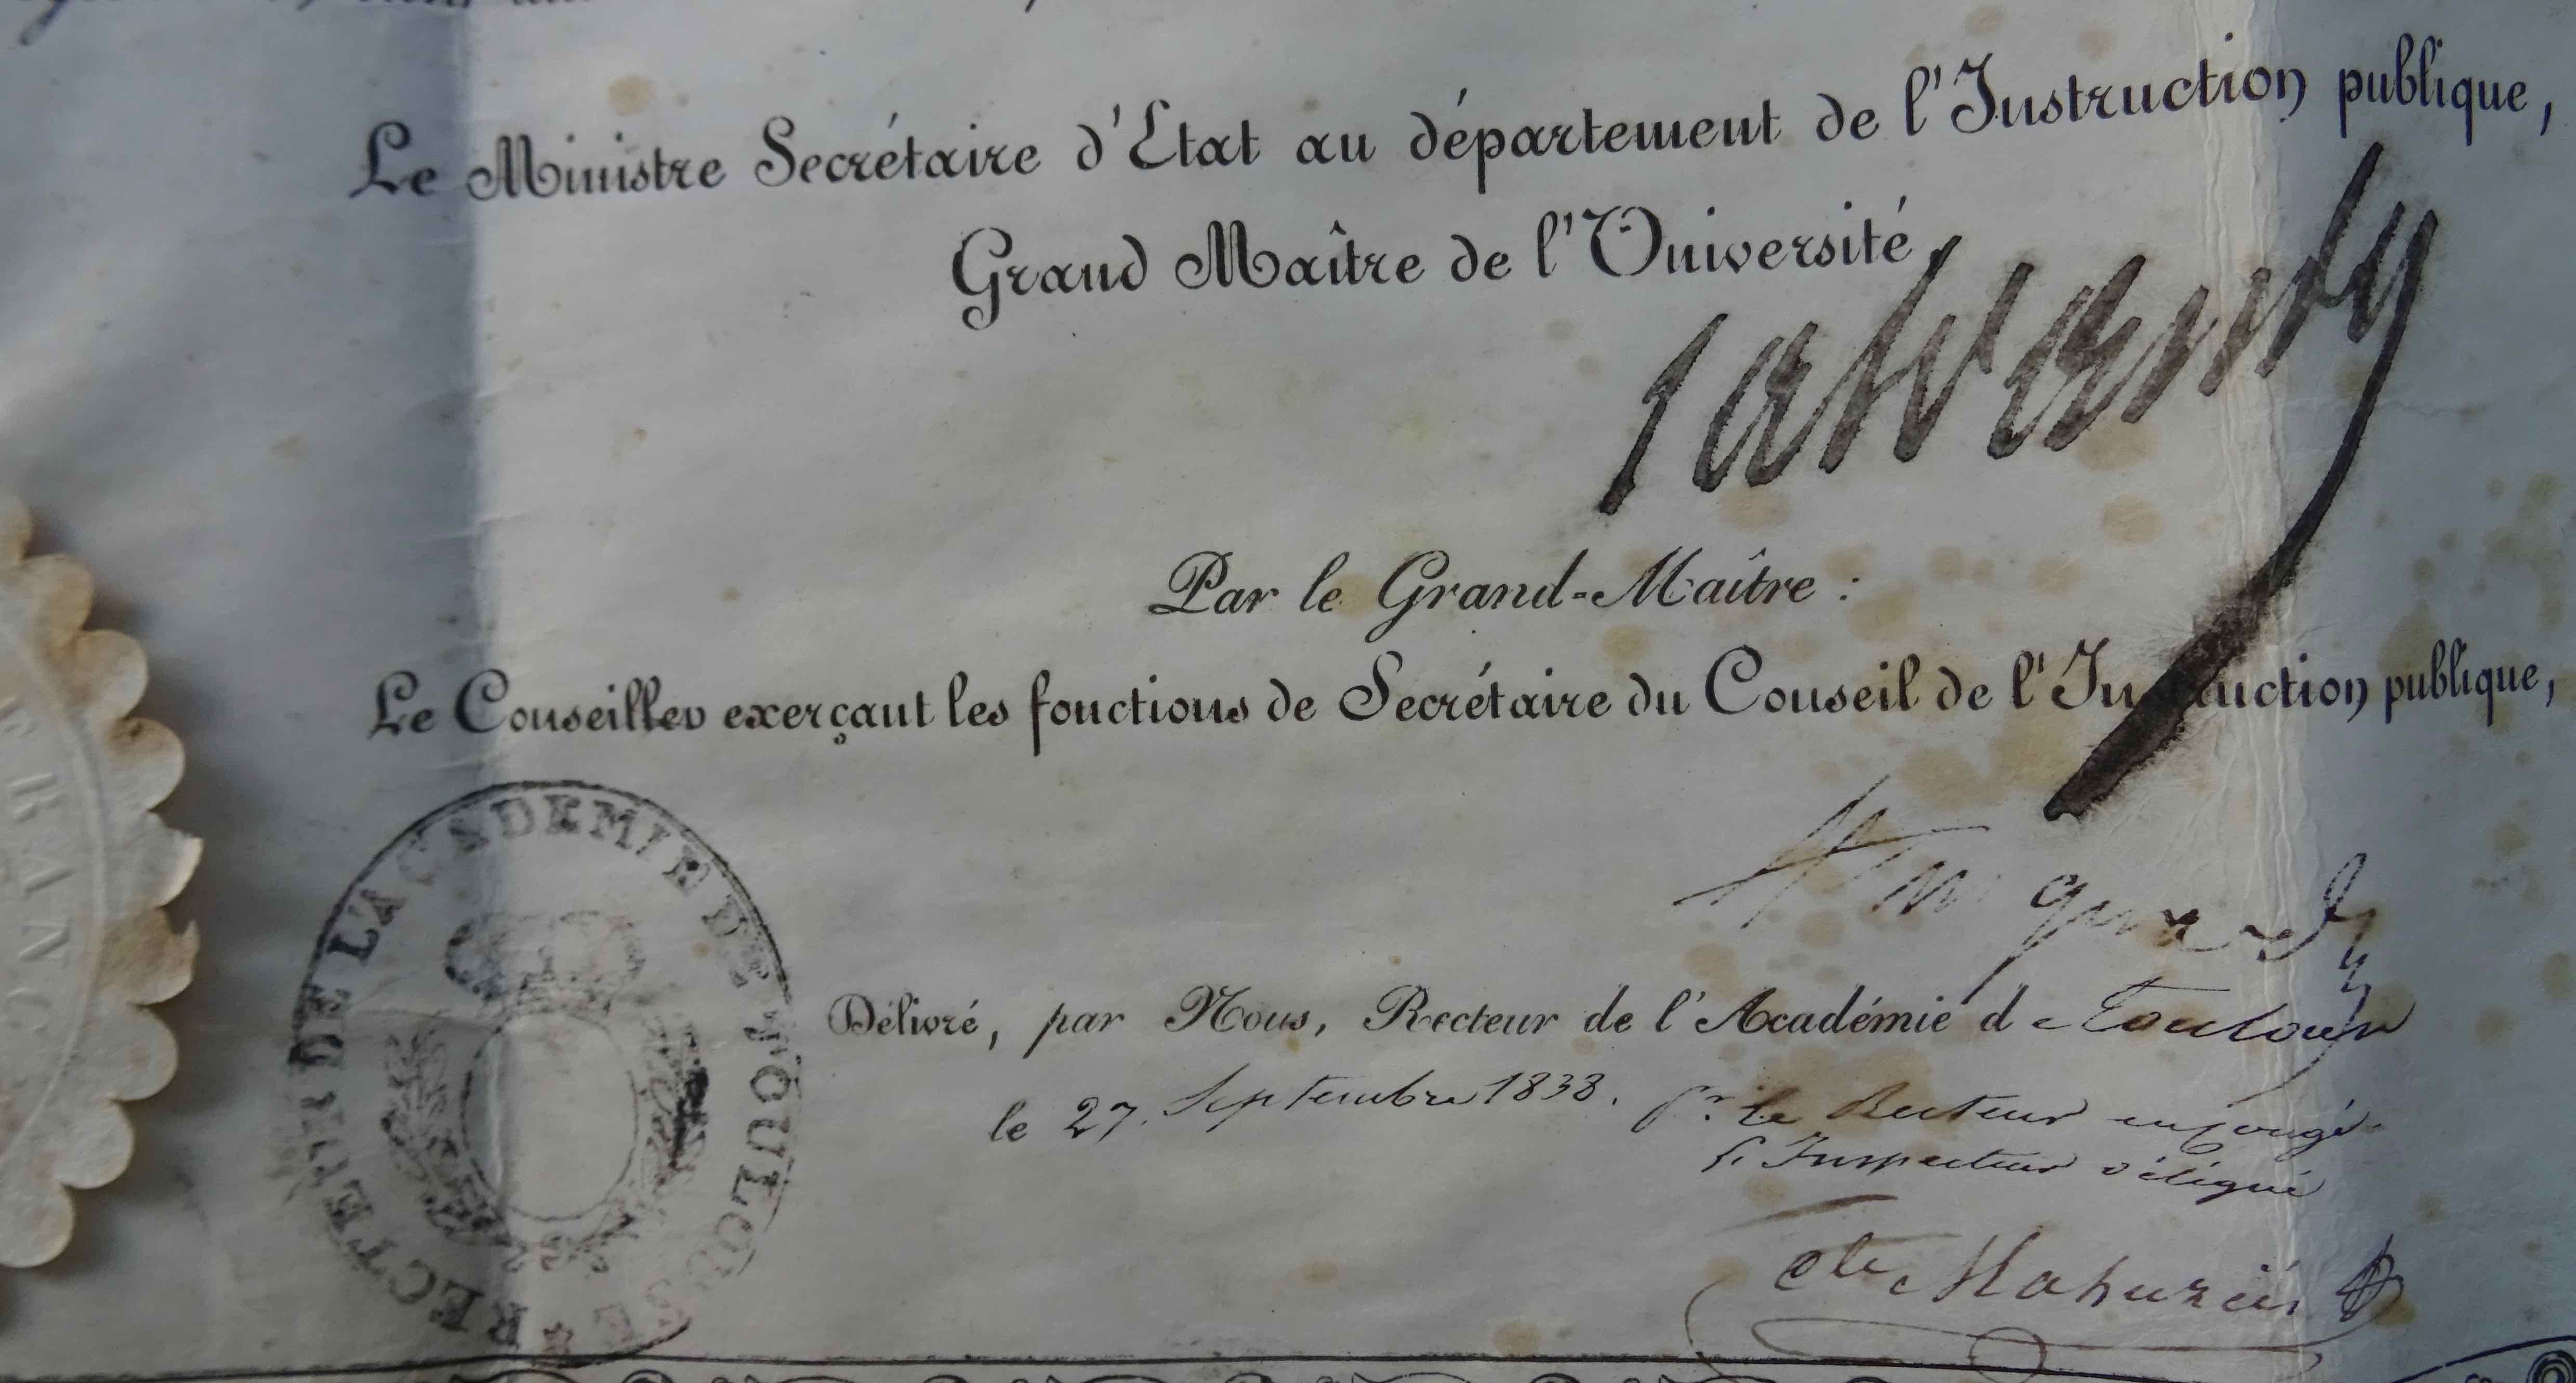 Le Ministre Secrétaire d'Etat au département de l'Instruction publique,
Grand Maître de l'Université,
Salvandy
Par le Grand-Maître :
Le Conseiller exerçant les fonctions de Secrétaire du Conseil de l'Instruction publique,
RECTEUR DE L'ACADEMIE DE TOULOUSE
FRANC
Délivré, par Nous, Recteur de l'Académie de Toulouse
le 27. Septembre 1838. Pr. le Recteur en congé
L'Inspecteur délégué